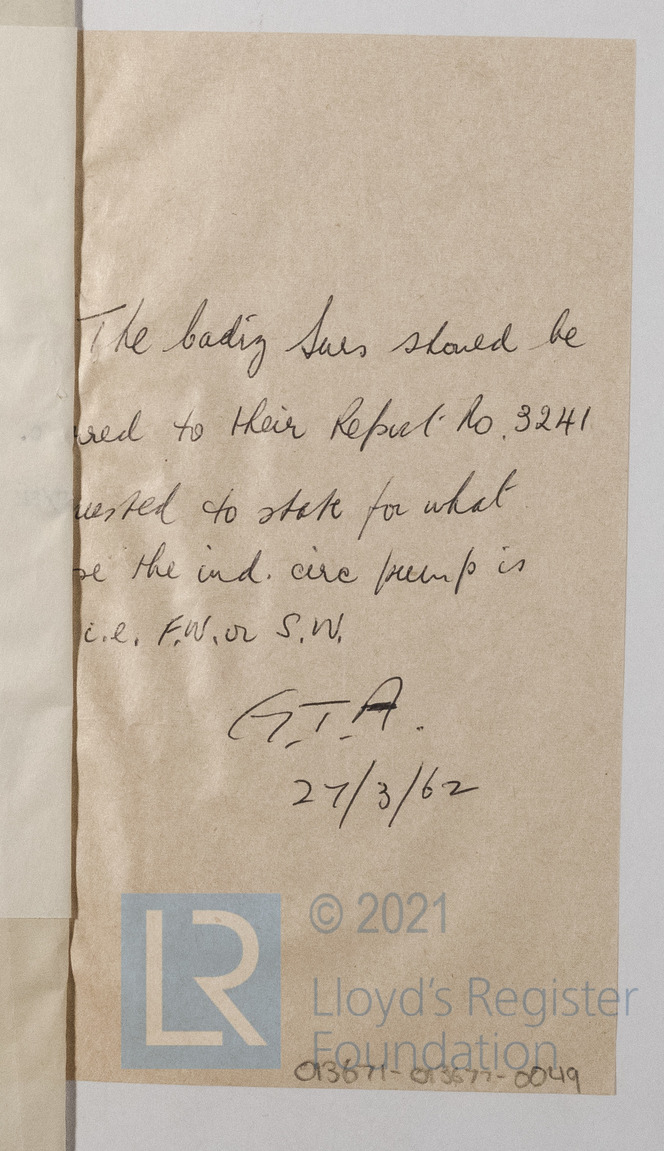 The Cadiz Surs should be
red to their Report No. 3241
uested to state for what
se the ind. circ pump is
i.e. F.W. or S.W.
G.T.A.
27/3/62
LR
© 2021
Lloyd's Register
Foundation
013671-013677-0049